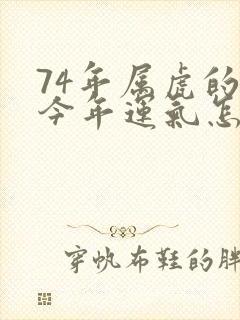 74年属虎的
今年运气怎
穿帆布鞋的胖